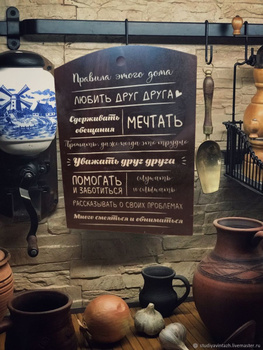 Правила этого дома
ЛЮБИТЬ ДРУГ ДРУГА
Сдерживать обещания
МЕЧТАТЬ
Прощать, даже когда это трудно
Уважать друг друга
ПОМОГАТЬ И ЗАБОТИТЬСЯ
слушать и слышать
РАССКАЗЫВАТЬ О СВОИХ ПРОБЛЕМАХ
Много смеяться и обниматься
© studiyavintach.livemaster.ru